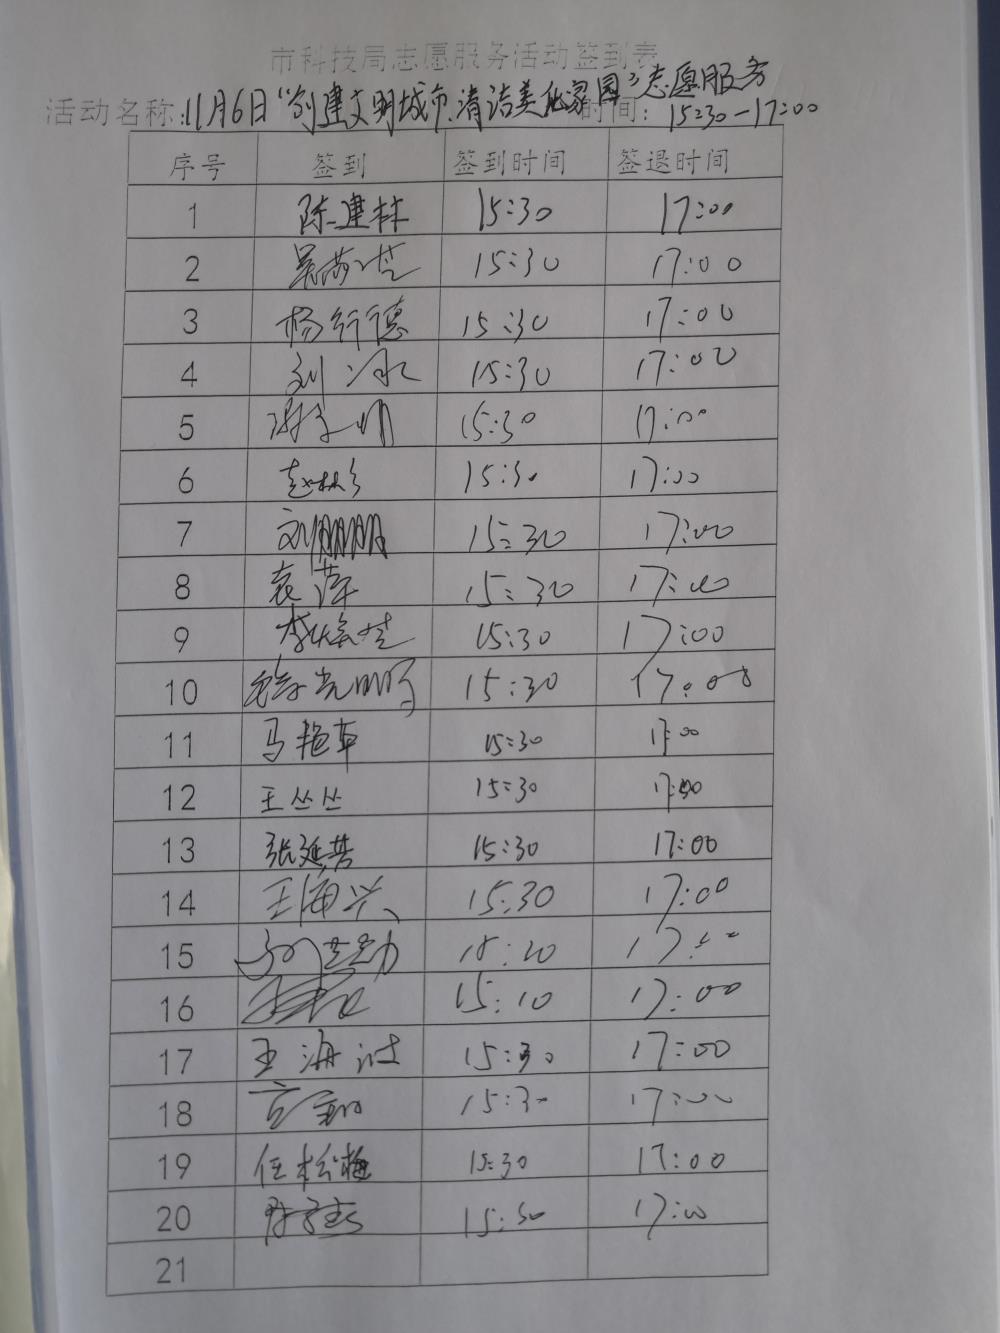 市科技局志愿服务活动签到表
活动名称:11月6日“创建文明城市、清洁美化家园”志愿服务 时间: 15:30-17:00
序号 签到 签到时间 签退时间
1 陈建林 15:30 17:00
2 15:30 17:00
3 杨行德 15:30 17:00
4 刘冰 15:30 17:00
5 15:30 17:00
6 15:30 17:00
7 刘鹏鹏 15:30 17:00
8 袁萍 15:30 17:00
9 15:30 17:00
10 15:30 17:00
11 马艳草 15:30 17:00
12 王丛丛 15:30 17:00
13 张延芸 15:30 17:00
14 王海兴 15:30 17:00
15
16 15:10 17:00
17 王海波 15:30 17:00
18 15:30 17:00
19 任松梅 15:30 17:00
20 15:30 17:00
21